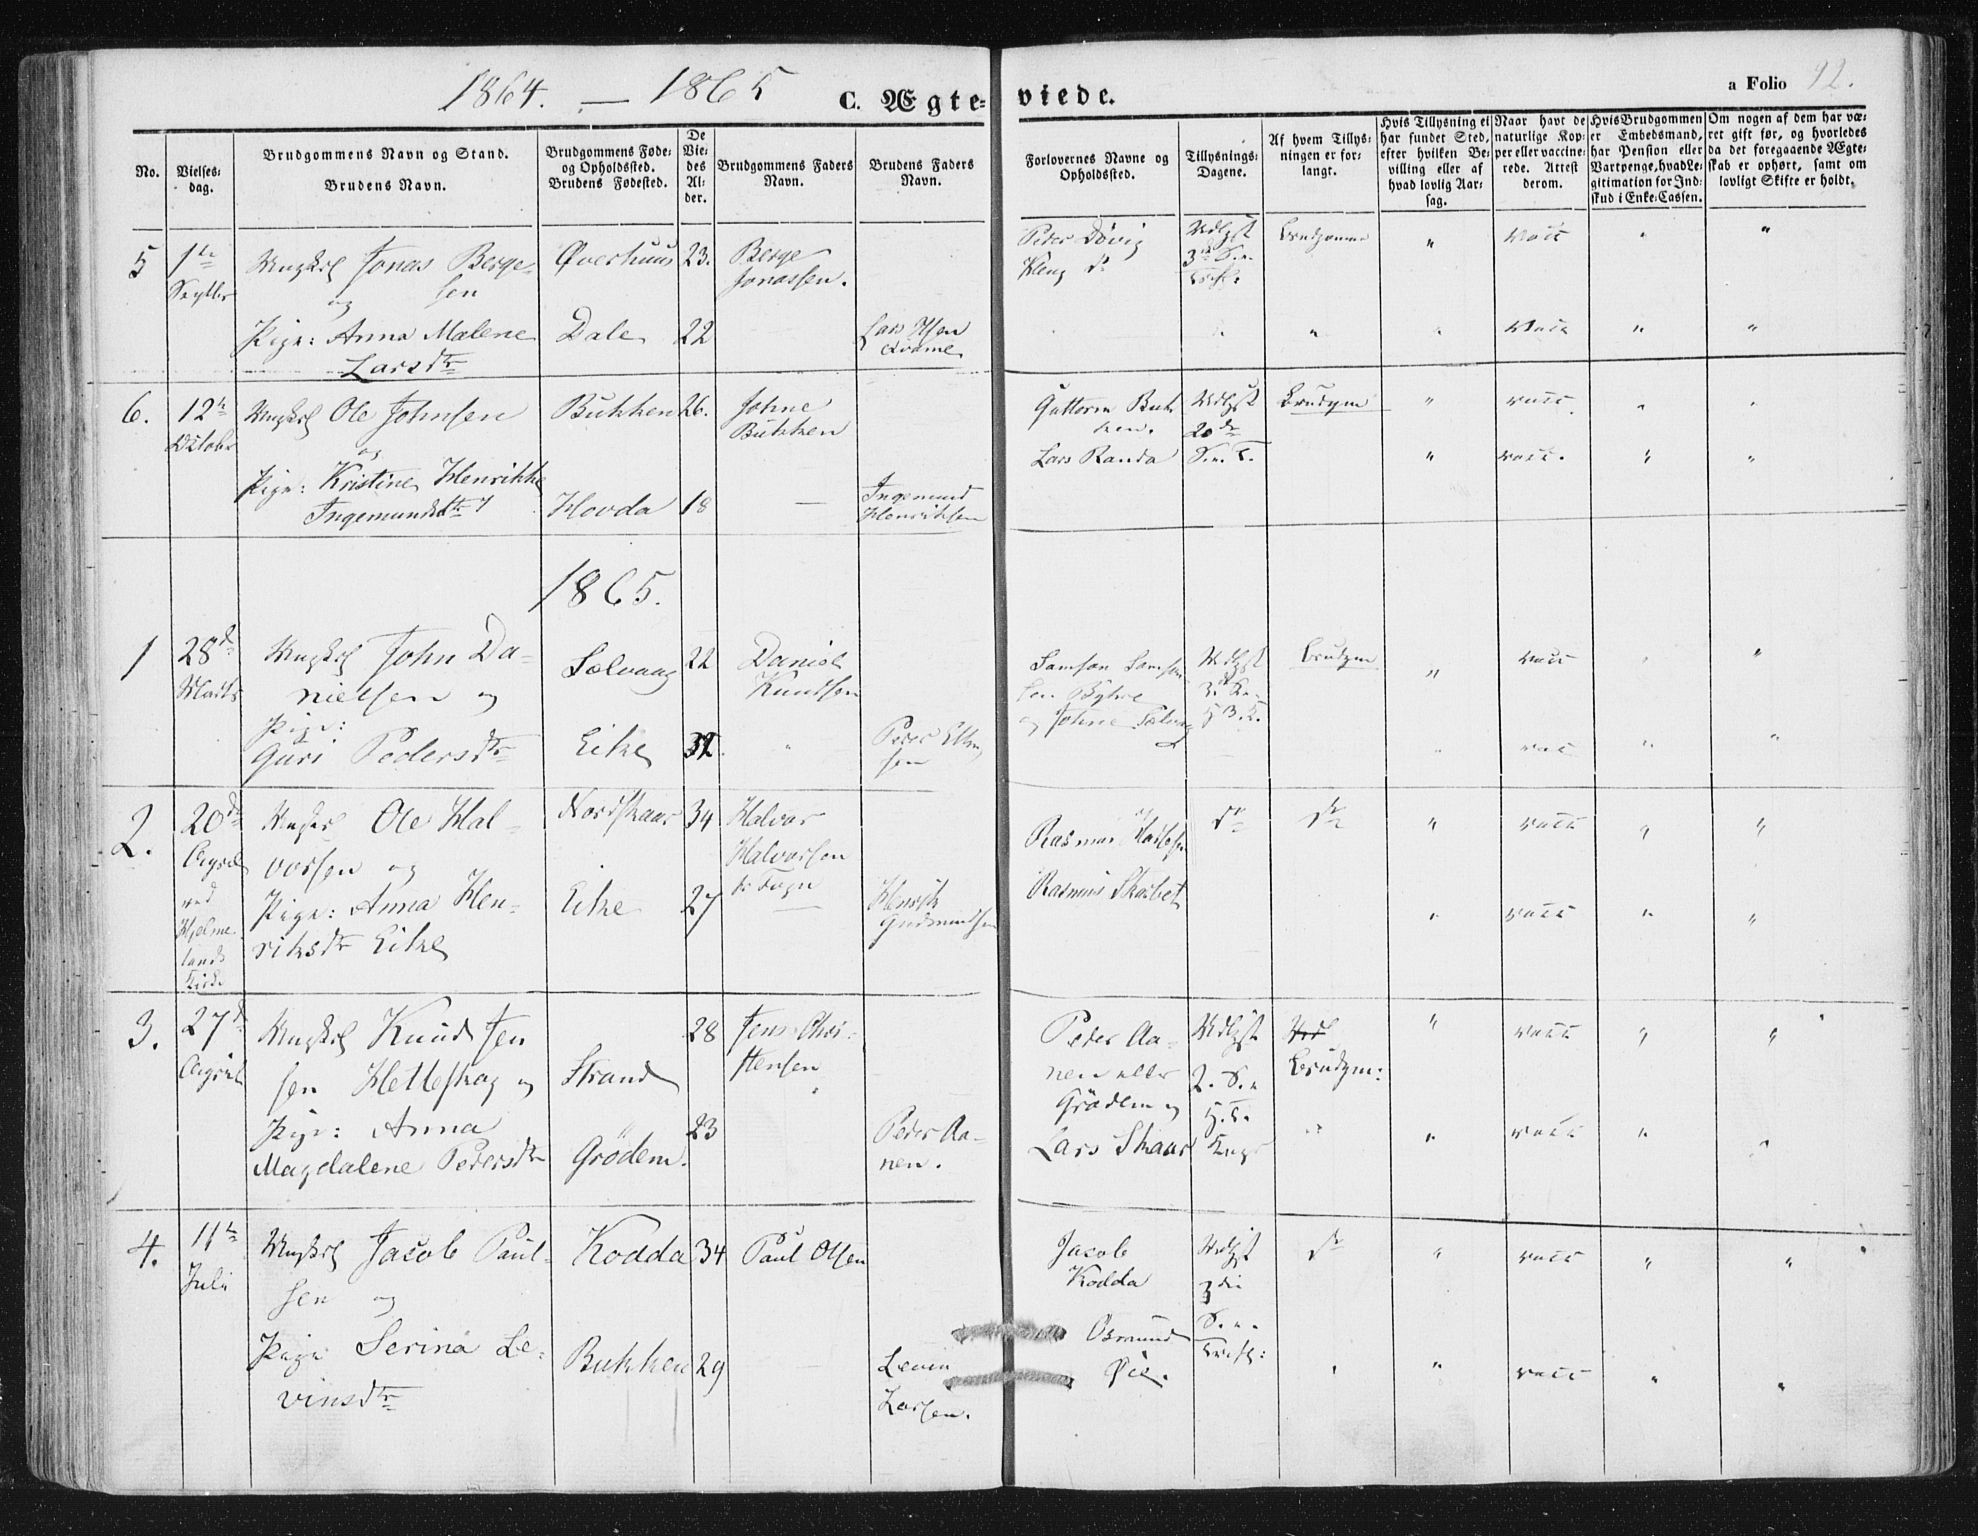 1864. — 1865
C. Ægte-
viede.
a Folio 92.
No.
Vielses-
dag.
Brudgommens Navn og Stand.
Brudens Navn.
Brudgommens Føde-
og Opholdssted.
Brudens Fødested.
De
Vie-
des
Al-
der.
Brudgommens Faders
Navn.
Brudens Faders
Navn.
Forlovernes Navne og
Opholdssted.
Tillysnings-
Dagene.
Af hvem Tillys-
ningen er for-
langt.
Hvis Tillysning ei
har fundet Sted,
efter hvilken Be-
villing eller af
hvad lovlig Aar-
sag.
Naar havt de
naturlige Kop-
per eller vaccine-
rede. Attest
derom.
Hvis Brudgommen
er Embedsmand,
har Pension eller
Vartpenge, hvad Le-
gitimation for Ind-
skud i Enke-Cassen.
Om nogen af dem har væ-
ret gift før, og hvorledes
da det foregaaende Ægte-
skab er ophørt, samt om
lovligt Skifte er holdt.
5
1te
Septbr
Ungkrl Jonas Berge-
og sen
Pige: Anna Malene
Larsdtr
Øverhuus
Dale
23.
22
Berge
Jonassen.
Lars
Peter Døvig
Kleng do
Udlyst
vacc
"
"
"
vacc
"
"
6.
12te
October
Ungkrl Ole Johnsen
og
Pige: Kristine Henrikke
Ingemundsdtr
Bukken
Hovda
26.
18
Johne
Bukken
—
Ingemund
Henriksen
Guttorm Buk
ken.
Lars Randa
Udlyst
20de
S. e. T.
Brudgm
"
vacc
"
vacc.
"
"
1865.
1
28de
Marts
Ungkrl John Da-
nielsen og
Pige:
Guri Pedersdtr
Sælvaag
Eike
22
32
Daniel
Knudsen
"
Peder
sen
Samson Samson
og Johne
Udlyst
Brudgm
"
vacc
"
"
vac
"
"
2.
20de
April
ved
Hjelme-
lands
Kirke
Ungkrl Ole Hal-
vorsen og
Pige: Anna Hen-
riksdtr Eike
Nordskaar
Eike
34
27
Halvor
Halvorsen
—
Henrik
Gudmundsen
Rasmus
Rasmus
do
do
"
vacc
"
"
"
vacc
"
"
3.
27de
April
Ungkrl Knud Jen
sen Hetleskog og
Pige: Anna
Magdalene Pedersdtr
Strand
Grödem.
28
23
Jens Chri-
stensen
Peder Aa-
nen.
Peder Aa-
nen eller
Grödem og
Lars Skaar
Udlyst
2. S. e
Brudgm:
"
vacc
"
"
"
vacc
"
"
4.
11te
Juli
Ungkrl Jacob Paul-
sen og
Pige Serina Le-
vinsdtr
Kodda
Bukken
34
29
Paul Olsen
—
Levin
Larsen.
Jacob
Kodda
Osmund
Øie.
Udlyst
3die
S. e.
do
"
vacc
"
"
"
vacc
"
"